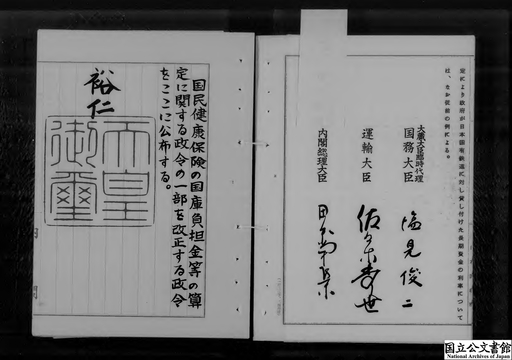 定により政府が日本国有鉄道に対し貸し付けた長期資金の利率について
は、なお従前の例による。
大蔵大臣臨時代理
国務大臣 塩見俊二
運輸大臣 佐々木秀世
内閣総理大臣 田中角栄
国民健康保険の国庫負担金等の算
定に関する政令の一部を改正する政令
をここに公布する。
裕仁
天皇御璽
国立公文書館
National Archives of Japan